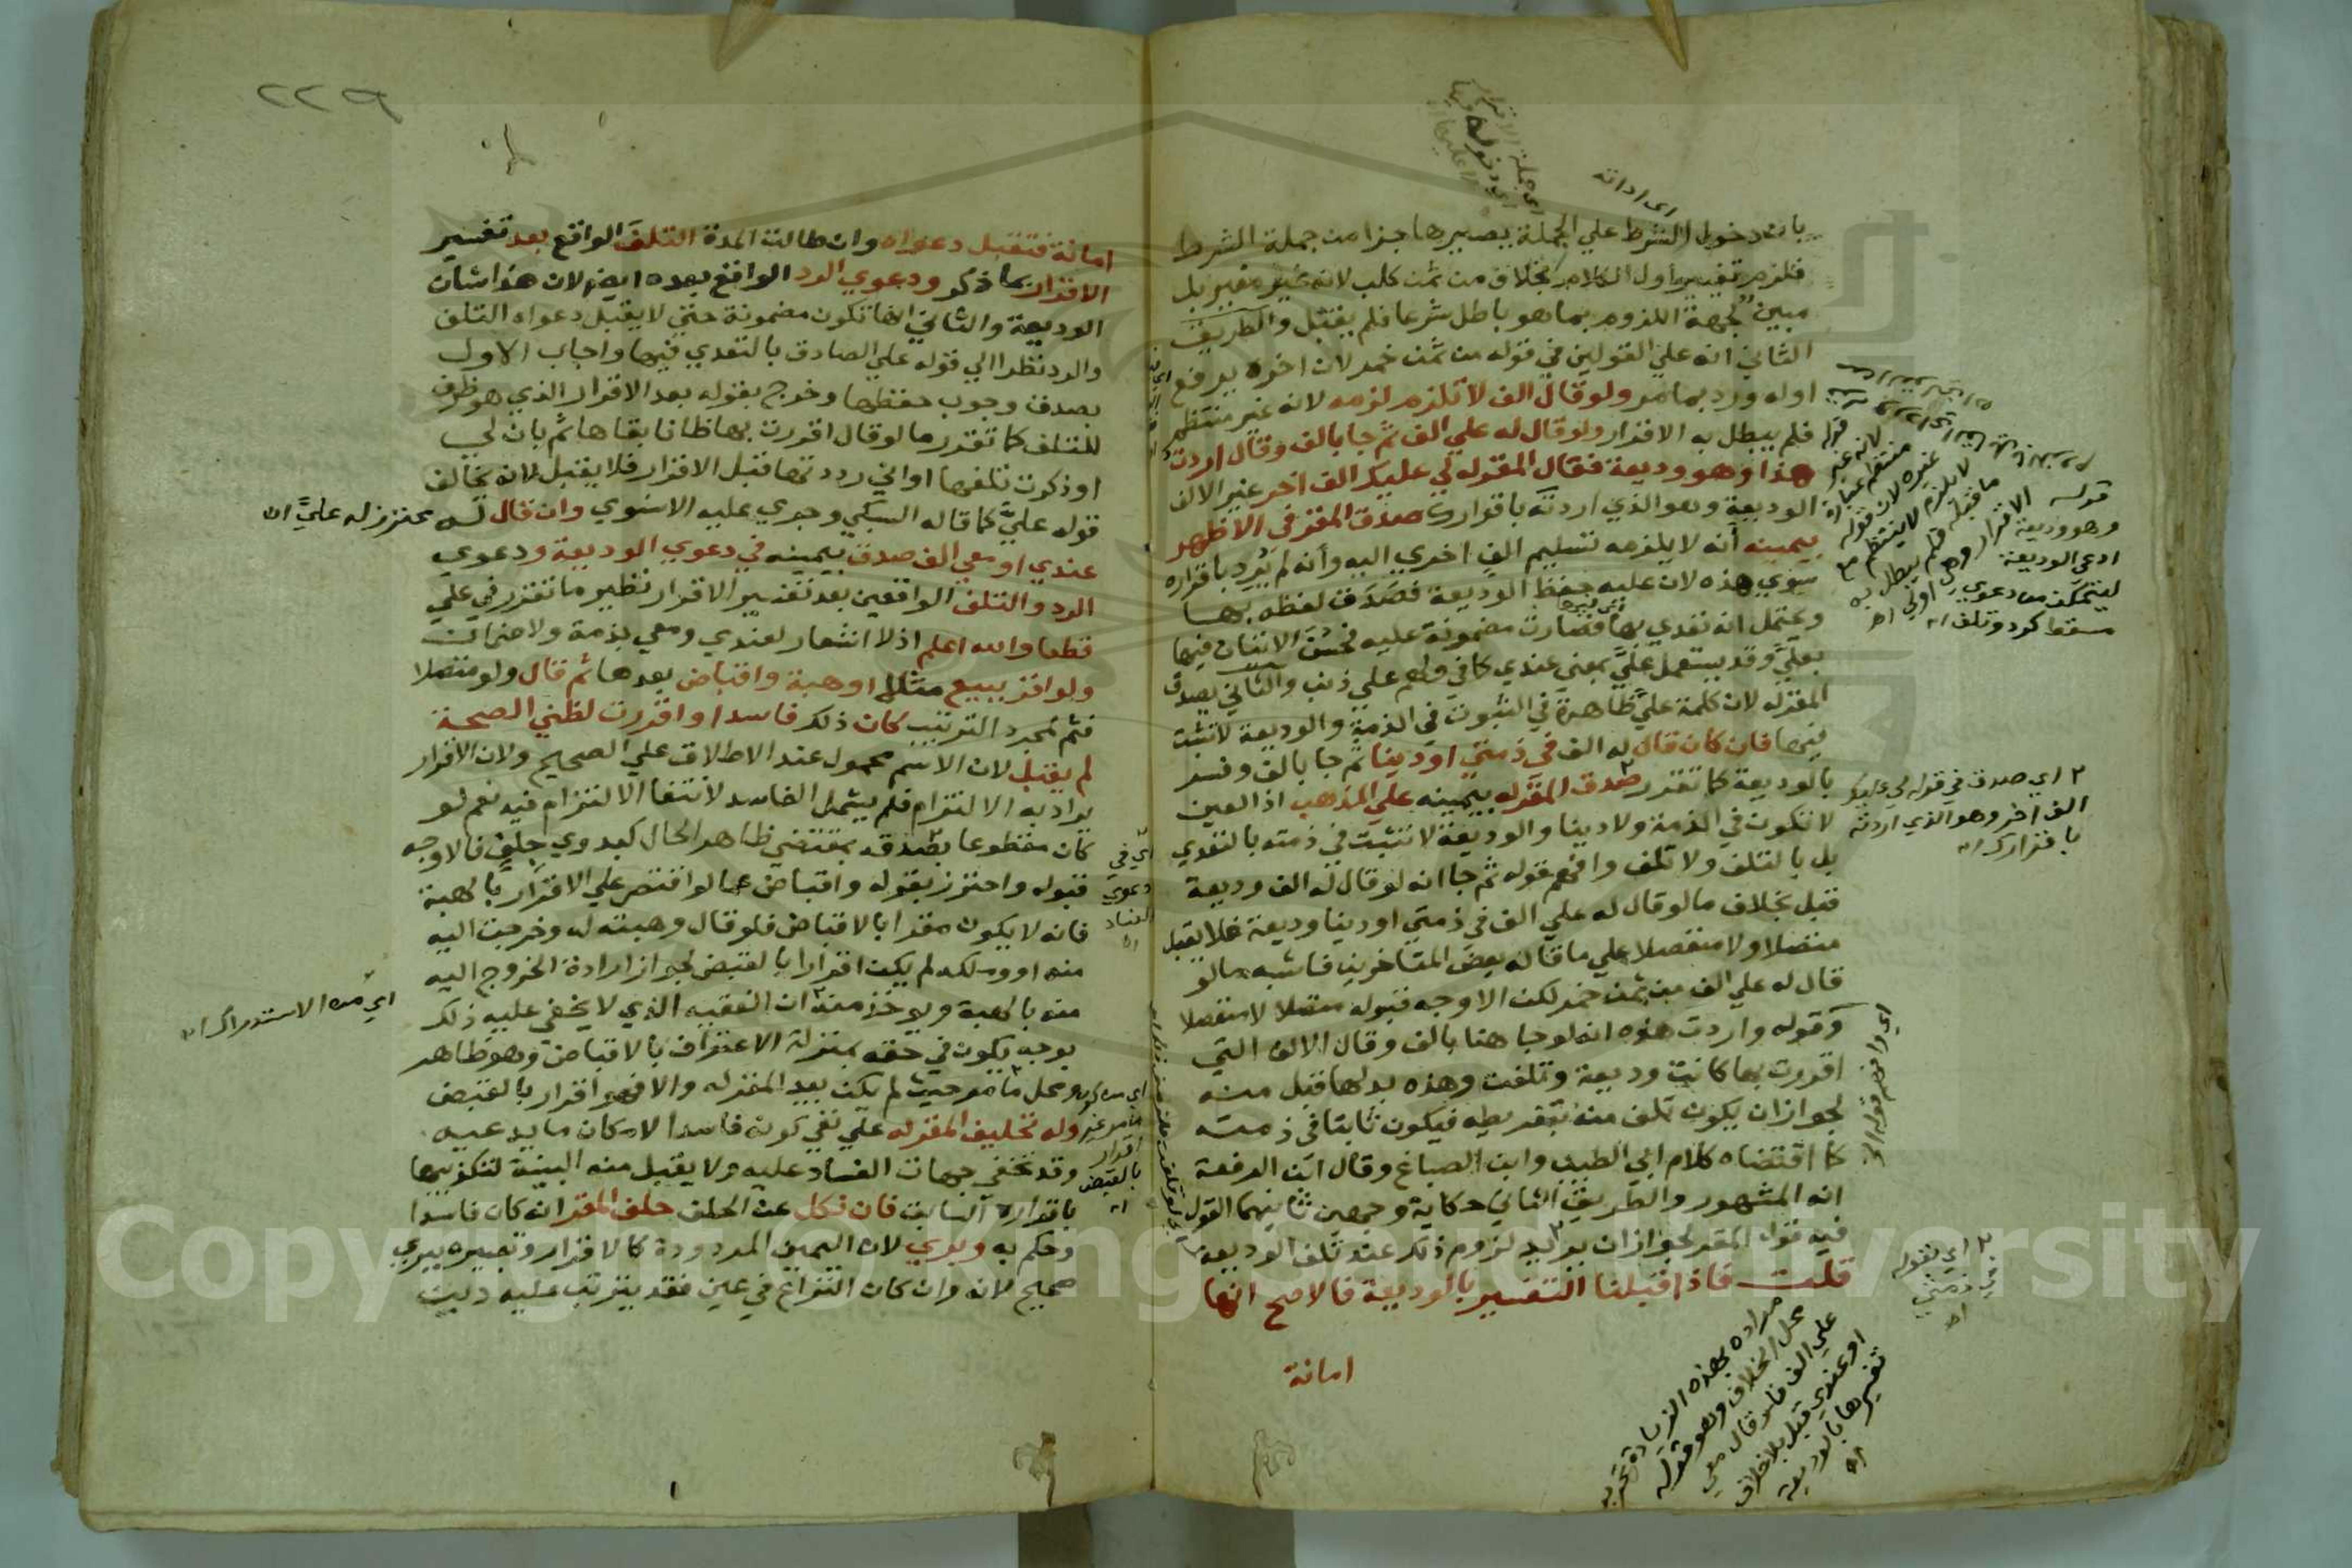 بان دخول الشرط علي الجملة يصيرها جزا من جملة الشرط
فلزم تغيير اول الكلام بخلاف من ثمن كلب لانه غير مغير بل
مبين لجهة اللزوم بما هو باطل شرعا فلم يقبل والطريق
الثاني انه علي القولين في قوله من ثمن خمر لان اخره يرفع
اوله ورد بما مر ولو قال الف لا تلزم لزمه لانه غير منتظم
فلم يبطل به الاقرار ولو قال له علي الف ثم جا بالف وقال اردت
هذا وهو وديعة فقال المقر له لي عليك الف اخر غير الالف
الوديعة وهو الذي اردته باقرارك صدق المقر في الاظهر
بيمينه انه لا يلزمه تسليم الف اخري اليه وأنه لم يرد باقراره
سوي هذه لان عليه حفظ الوديعة فصدق لفظه بها
ويحتمل انه تعدي بها فصارت مضمونة عليه فحسن الاتيان فيها
بعليّ وقد يستعمل عليّ بمعني عندي كما في ولهم علي ذنب والثاني يصدق
المقر له لان كلمة عليّ ظاهرة في الثبوت في الذمة والوديعة لا تثبت
فيها فان كان قال له الف في ذمتي او دينا ثم جا بالف وفسر
بالوديعة كما تقرر صدق المقر له بيمينه علي المذهب اذ العين
لا تكون في الذمة ولا دينا والوديعة لا تثبت في ذمته بالتعدي
بل بالتلف ولا تلف وافهم قوله ثم جا انه لو قال له الف وديعة
قبل بخلاف ما لو قال له علي الف في ذمتي او دينا وديعة فلا يقبل
متصلا ولا منفصلا علي ما قاله بعض المتاخرين فاشبه ما لو
قال له علي الف من ثمن خمر لكن الاوجه قبوله متصلا لا منفصلا
وقوله واردت هذه انه لو جا هنا بالف وقال الالف التي
اقررت بها كانت وديعة وتلفت وهذه بدلها قبل منه
لجواز ان يكون تلف منه بتفريطه فيكون ثابتا في ذمته
كما اقتضاه كلام ابي الطيب وابن الصباغ وقال ابن الرفعة
انه المشهور والطريق الثاني حكاية وجهين ثانيهما القول
فيه قول المقر لجواز ان يريد لزوم ذلك عند تلف الوديعة
قلت فاذا قبلنا التفسير بالوديعة فالاصح انها
امانة
اي اداته
٢ اي صدق في قوله لي عليك
الف اخر وهو الذي اردته
باقرارك اه
قوله
وهو وديعة
ادعي الوديعة
ليتمكن من دعوي
مسقط كرد وتلف اه
اي وافهم قوله الخ
٢ اي بقوله
في ذمتي
اه
مراده بهذه الزيادة تحرير
محل الخلاف وهو قوله
علي الف فلو قال معي
او عندي قبل بلا خلاف
تفسيرها بالوديعة
اه
٢٢٩
امانة فتقبل دعواه وان طالت المدة التلف الواقع بعد تفسير
الاقرار بما ذكر ودعوي الرد الواقع بعده ايضا لان هذا شان
الوديعة والثاني انها تكون مضمونة حتي لا يقبل دعواه التلف
والرد نظرا الي قوله علي الصادق بالتعدي فيها واجاب الاول
بصدق وجوب حفظها وخرج بقوله بعد الاقرار الذي هو ظرف
للتلف كما تقرر ما لو قال اقررت بها ظانا بقاها ثم بان لي
او ذكرت تلفها او اني رددتها قبل الاقرار فلا يقبل لانه يخالف
قوله عليّ كما قاله السبكي وجري عليه الاسنوي وان قال له
عندي او معي الف صدق بيمينه في دعوي الوديعة ودعوي
الرد والتلف الواقعين بعد تفسير الاقرار نظير ما تقرر في علي
قطعا والله اعلم اذ لا اشعار لعندي ومعي بذمة ولا ضمان
ولو اقر ببيع مثلا او هبة واقباض بعدها ثم قال ولو متصلا
فثم لمجرد الترتيب كان ذلك فاسدا واقررت لظني الصحة
لم يقبل لان الاسم محمول عند الاطلاق علي الصحيح ولان الاقرار
يراد به الالتزام فلم يشمل الفاسد لانتفا الالتزام فيه نعم لو
كان مقطوعا بصدقه بمقتضي ظاهر الحال كبدوي جلف فالاوجه
قبوله واحترز بقوله واقباض عما لو اقتصر علي الاقرار بالهبة
فانه لا يكون مقرا بالاقباض فلو قال وهبته له وخرجت اليه
منه او وملكه لم يكن اقرارا بالقبض لجواز ارادة الخروج اليه
منه بالهبة ويوخذ منه ان الفقيه الذي لا يخفي عليه ذلك
يوجه يكون في حقه بمنزلة الاعتراف بالاقباض وهو ظاهر
ومحل ما مر حيث لم يكن بيد المقر له والا فهو اقرار بالقبض
وله تحليف المقر له علي نفي كونه فاسدا لامكان ما يدعيه
وقد تخفي جهات الفساد عليه ولا يقبل منه البينة لتكذيبها
باقراره السابق فان نكل عن الحلف حلف المقر انه كان فاسدا
وحكم به وبري لان اليمين المردودة كالاقرار وتعبيره ببري
صحيح لانه وان كان النزاع في عين فقد يترتب عليه دين
محترز له عليّ اه
اي في
دعوي
الفساد
اه
اي من هذا الاستدراك اه
اي من كون
ما مر غير
اقرار
بالقبض
اه